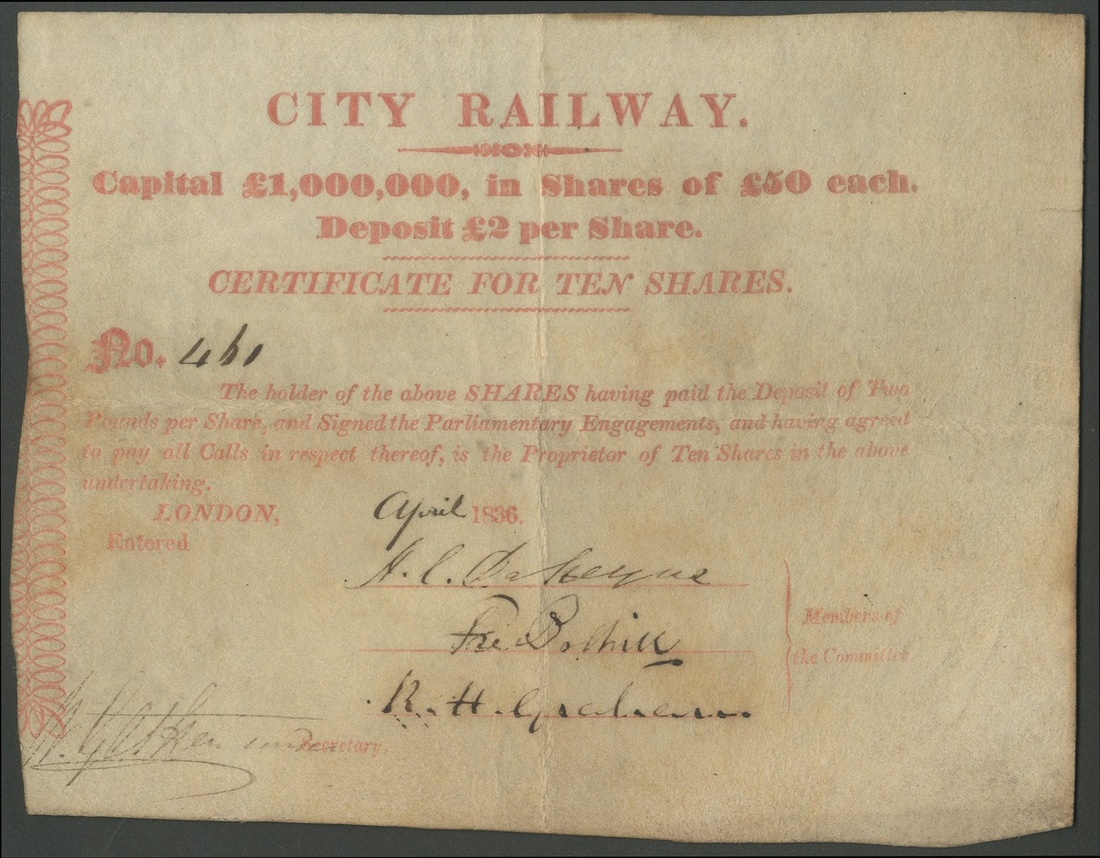 CITY RAILWAY.
Capital £1,000,000, in Shares of £50 each.
Deposit £2 per Share.
CERTIFICATE FOR TEN SHARES.
No. 461
The holder of the above SHARES having paid the Deposit of Two
Pounds per Share, and Signed the Parliamentary Engagements, and having agreed
to pay all Calls in respect thereof, is the Proprietor of Ten Shares in the above
undertaking.
LONDON, April 1836.
Entered
H. C.
Members of
the Committee.
R. H. Graham
Secretary.